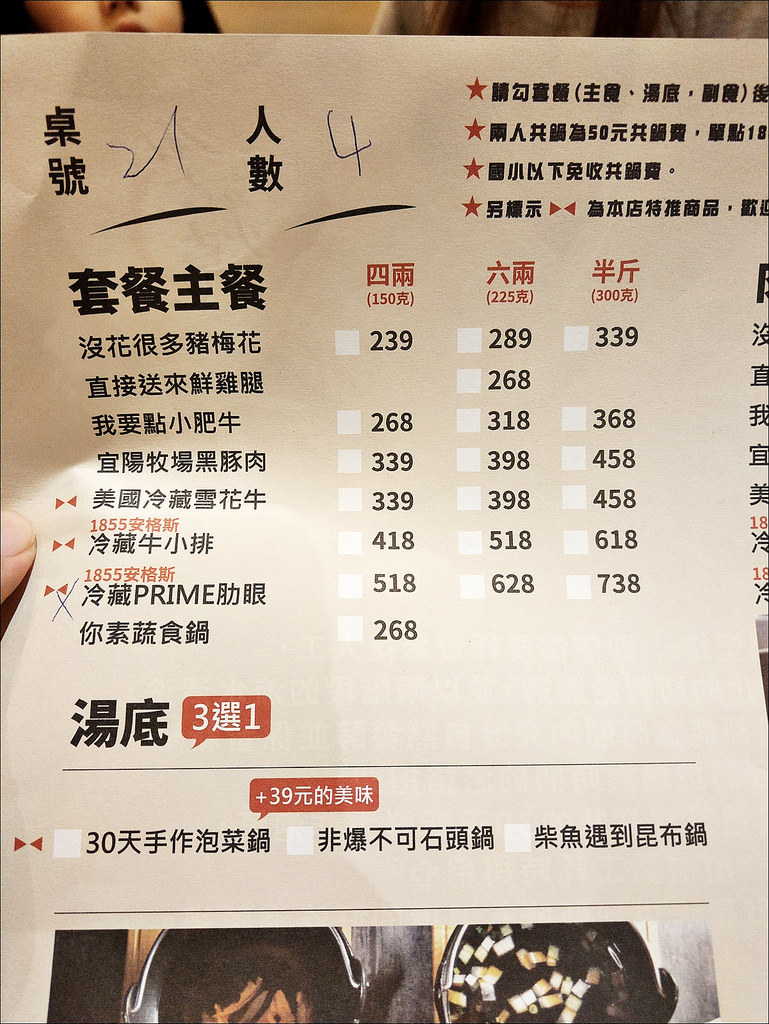 桌號 21 人數 4
★請勾套餐(主食、湯底,副食)後
★兩人共鍋為50元共鍋費,單點18
★國小以下免收共鍋費。
★另標示 為本店特推商品,歡迎
套餐主餐 四兩 (150克) 六兩 (225克) 半斤 (300克)
沒花很多豬梅花 239 289 339
直接送來鮮雞腿 268
我要點小肥牛 268 318 368
宜陽牧場黑豚肉 339 398 458
美國冷藏雪花牛 339 398 458
1855安格斯
冷藏牛小排 418 518 618
1855安格斯
X 冷藏PRIME肋眼 518 628 738
你素蔬食鍋 268
湯底 3選1
+39元的美味
30天手作泡菜鍋 非爆不可石頭鍋 柴魚遇到昆布鍋
沒
直
我
宜
美
18
冷
18
冷